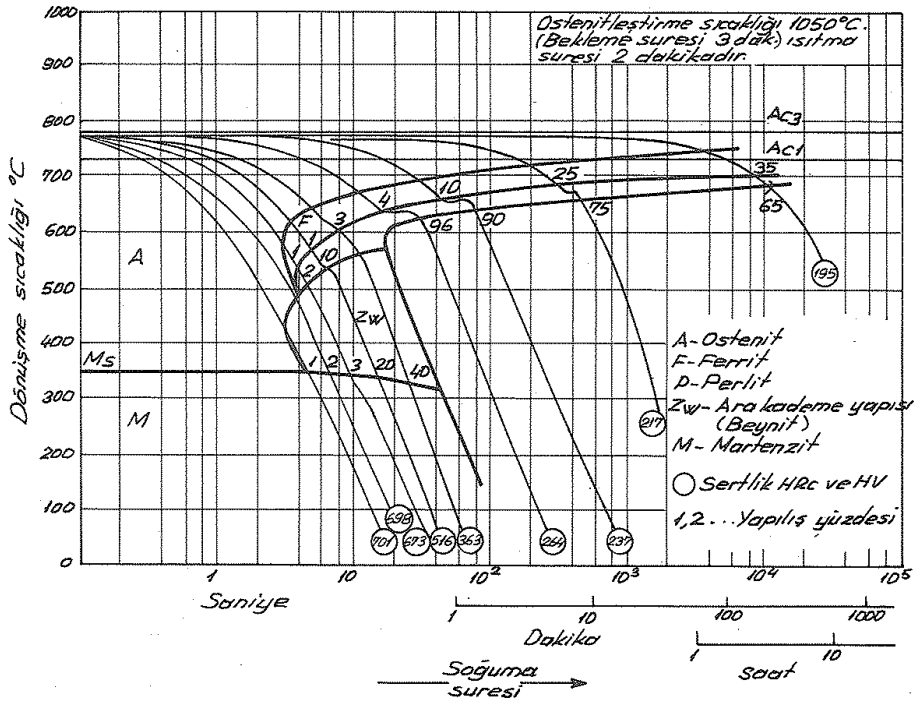 1000
900
800
700
600
500
400
300
200
100
0
Dönüşme sıcaklığı °C
Ostenitleştirme sıcaklığı 1050°C.
(Bekleme suresi 3 dak.) ısıtma
suresi 2 dakikadır.
Ac3
Ac1
A
F
Zw
Ms
M
1
1
2
10
3
4
10
25
35
96
90
75
65
1
2
3
20
40
701
698
673
516
363
264
237
217
195
A-Ostenit
F-Ferrit
P-Perlit
Zw-Ara kademe yapısı
(Beynit)
M-Martenzit
Sertlik HRc ve HV
1,2...Yapılış yüzdesi
1
10
10²
10³
10⁴
10⁵
Saniye
1
10
100
1000
Dakika
1
10
saat
Soğuma
suresi